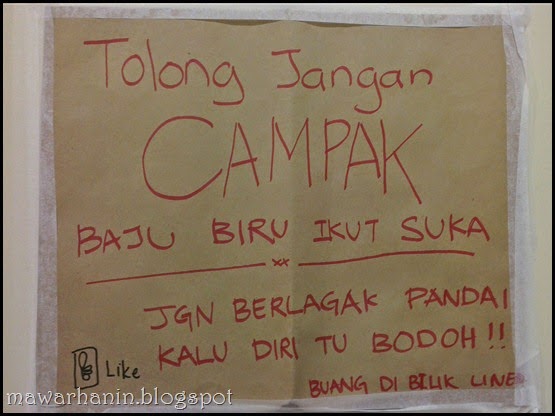 Tolong Jangan
CAMPAK
BAJU BIRU IKUT SUKA
xx
JGN BERLAGAK PANDAI
KALU DIRI TU BODOH!!
Like
BUANG DI BILIK LINEN
mawarhanin.blogspot